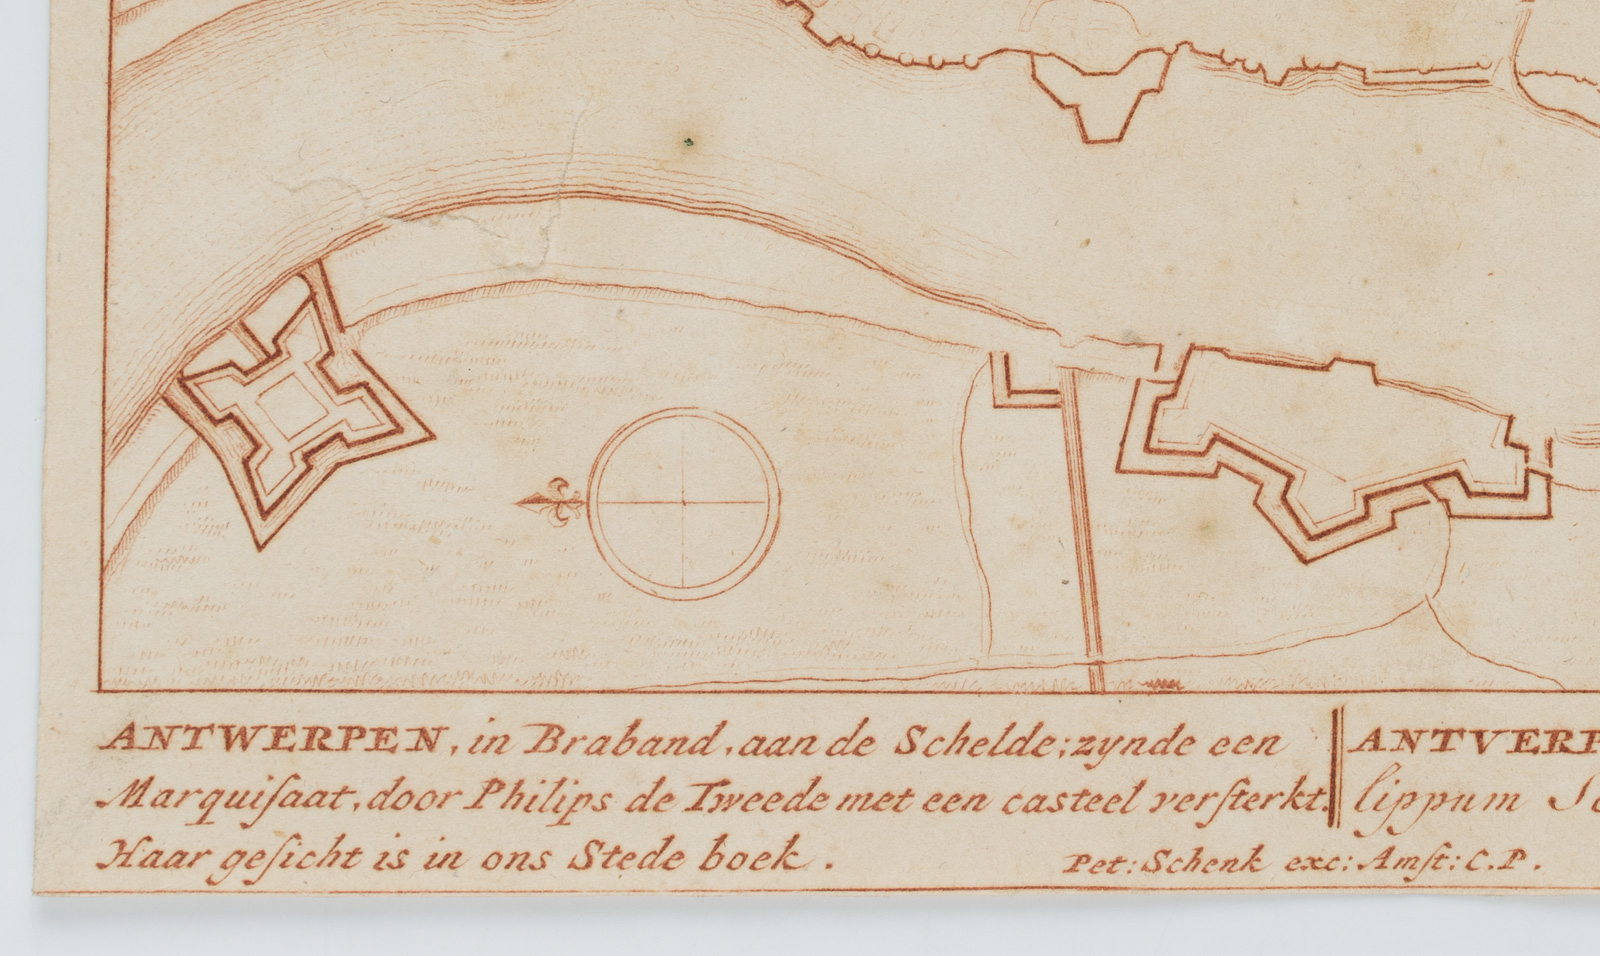 ANTWERPEN, in Braband, aan de Schelde; zynde een
Marquiſaat, door Philips de Tweede met een casteel verſterkt.
Haar geſicht is in ons Stede boek.
ANTVERP
lippum
Pet: Schenk exc: Amſt: C.P.